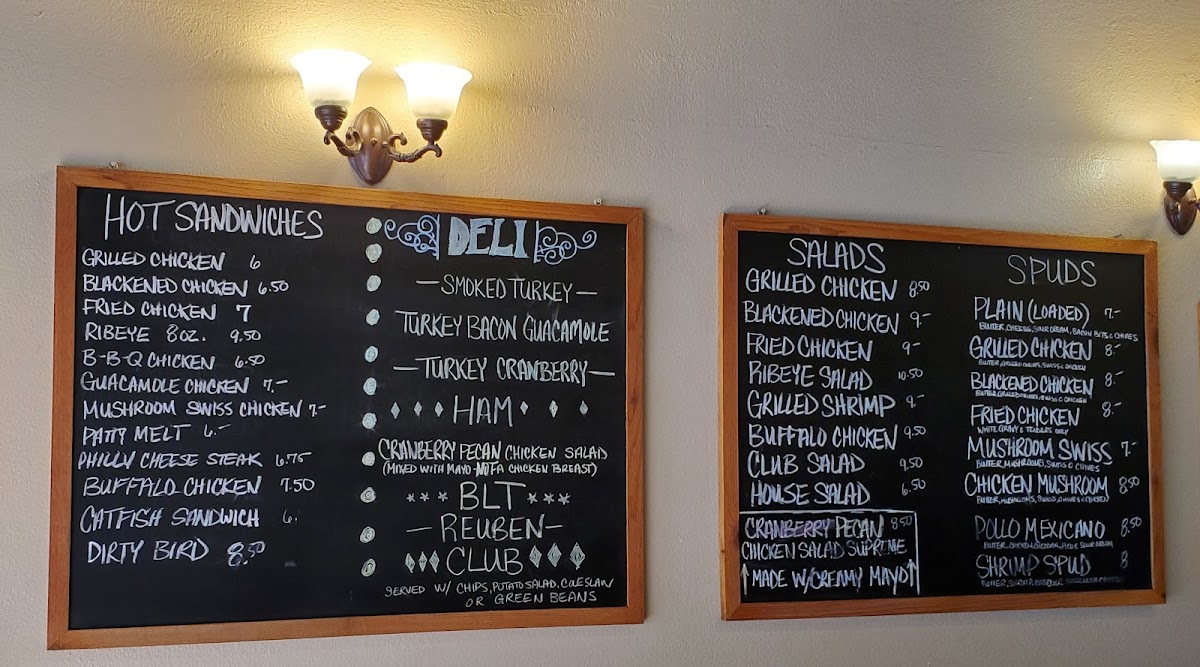 HOT SANDWICHES
GRILLED CHICKEN 6
BLACKENED CHICKEN 6.50
FRIED CHICKEN 7
RIBEYE 8OZ. 9.50
B-B-Q CHICKEN 6.50
GUACAMOLE CHICKEN 7.-
MUSHROOM SWISS CHICKEN 7-
PATTY MELT 6.-
PHILLY CHEESE STEAK 6.75
BUFFALO CHICKEN 7.50
CATFISH SANDWICH 6.
DIRTY BIRD 8.50
DELI
—SMOKED TURKEY—
TURKEY BACON GUACAMOLE
—TURKEY CRANBERRY—
HAM
CRANBERRY PECAN CHICKEN SALAD
(MIXED WITH MAYO-NOT A CHICKEN BREAST)
*** BLT ***
—REUBEN—
CLUB
SERVED W/ CHIPS, POTATO SALAD, COLESLAW
OR GREEN BEANS
SALADS
GRILLED CHICKEN 8.50
BLACKENED CHICKEN 9.-
FRIED CHICKEN 9-
RIBEYE SALAD 10.50
GRILLED SHRIMP 9.-
BUFFALO CHICKEN 9.50
CLUB SALAD 9.50
HOUSE SALAD 6.50
CRANBERRY PECAN 8.50
CHICKEN SALAD SUPREME
↑MADE W/CREAMY MAYO↑
SPUDS
PLAIN (LOADED) 7.-
BUTTER, CHEESE, SOUR CREAM, BACON BITS & CHIVES
GRILLED CHICKEN 8.-
BUTTER, GRILLED ONIONS, SWISS & CHICKEN
BLACKENED CHICKEN 8.-
BUTTER, GRILLED ONIONS, SWISS & CHICKEN
FRIED CHICKEN 8.-
WHITE GRAVY & TENDERS ONLY
MUSHROOM SWISS 7.-
BUTTER, MUSHROOMS, SWISS & CHIVES
CHICKEN MUSHROOM 8.50
BUTTER, MUSHROOMS, SWISS, CHIVES & CHICKEN
POLLO MEXICANO 8.50
BUTTER, CHICKEN, SOUR CREAM
SHRIMP SPUD 8
BUTTER, SHRIMP